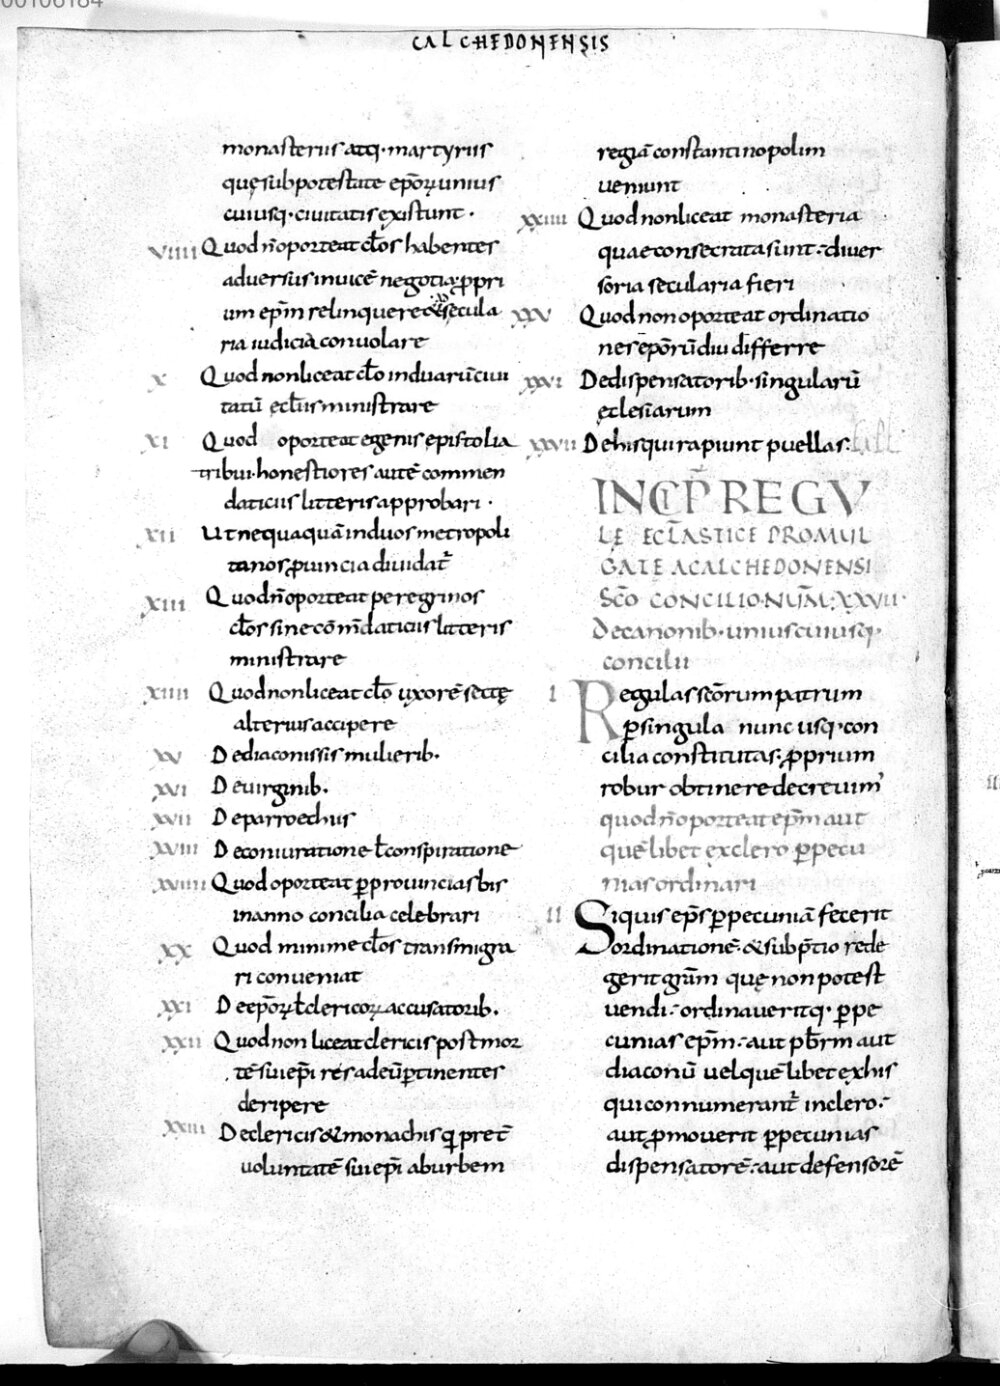 00106184
CALCHEDONENSIS
monasteriis atq· martyriis
quę sub potestate ep̄oꝝ unius
cuiusq· ciuitatis existunt·
VIIII Quod n̄ oporteat cl̄os habentes
aduersus inuicē negotia ꝓpri
um ep̄m relinquere & ad secula
ria iudicia conuolare
X Quod non liceat cl̄o in duarū ciui
tatū ecl̄iis ministrare
XI Quod oporteat egenis epistolia
tribui· honestiores autē commen
daticiis litteris approbari·
XII Ut nequaquā in duos metropoli
tanos ꝓuincia diuidat̄
XIII Quod n̄ oporteat peregrinos
cl̄os sine cōm̄daticiis litteris
ministrare
XIIII Quod non liceat cl̄o uxorē sectę
alterius accipere
XV De diaconissis mulierib·
XVI De uirginib·
XVII De parroechiis
XVIII De coniuratione ł conspiratione
XVIIII Quod oporteat ꝑ prouincias bis
in anno concilia celebrari
XX Quod minime cl̄os transmigra
ri conueniat
XXI De ep̄oꝝ ł clericoꝝ accusatorib·
XXII Quod non liceat clericis post mor
tē sui ep̄i res ad eū ꝑtinentes
deripere
XXIII De clericis & monachis qui pret̄
uoluntatē sui ep̄i ab urbem
regiā constantinopolim
ueniunt
XXIIII Quod non liceat monasteria
quae consecrata sunt· diuer
soria secularia fieri
XXV Quod non oporteat ordinatio
nes ep̄orū diu differre
XXVI De dispensatorib· singularū
eclesiarum
XXVII De his qui rapiunt puellas·
INCIP̄ REGU
LE ECL̄ASTICE PROMUL
GATE A CALCHEDONENSI
SC̄O CONCILIO· NUM̄· XXVII·
De canonib· uniuscuiusq·
concilii
I Regulas sc̄orum patrum
ꝑ singula nunc usq· con
cilia constitutas· ꝓprium
robur obtinere decreuim'
quod n̄ oporteat ep̄m aut
quēlibet ex clero ꝑ pecu
nias ordinari
II Si quis ep̄s ꝑ pecuniā fecerit
ordinationē· & sub p̄tio rede
gerit gr̄am quę non potest
uendi· ordinaueritq· ꝑ pe
cunias ep̄m· aut pb̄rm aut
diaconū uel quēlibet ex his
qui connumerant̄ in clero·
aut ꝓmouerit ꝑ pecunias
dispensatorē· aut defensorē